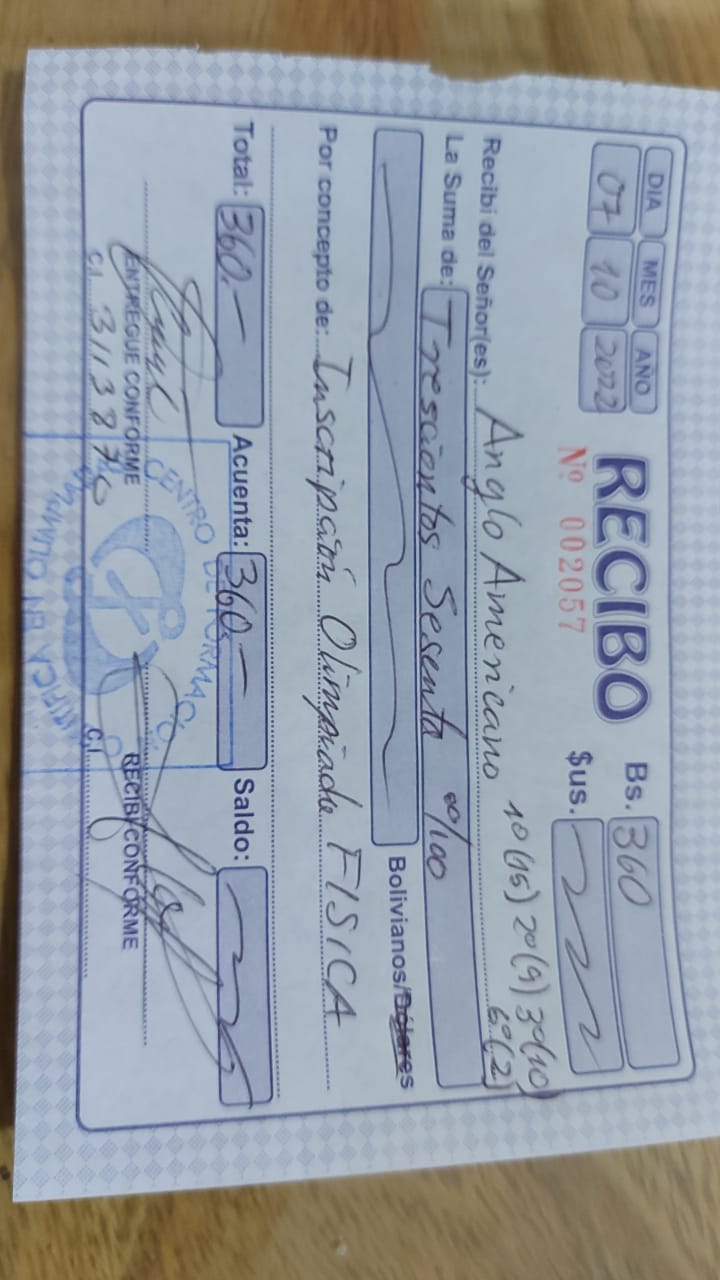 DIA MES AÑO
07 10 2022
RECIBO
Nº 002057
Bs. 360
$us.
Recibí del Señor(es): Anglo Americano 1º(15) 2º(9) 3º(10)
6º(2)
La Suma de: Trescientos Sesenta 00/100
Bolivianos/Dólares
Por concepto de: Inscripción Olimpiada FISICA
Total: 360.- Acuenta: 360.- Saldo:
ENTREGUE CONFORME RECIBI CONFORME
C.I. 3113870 C.I.
CENTRO DE